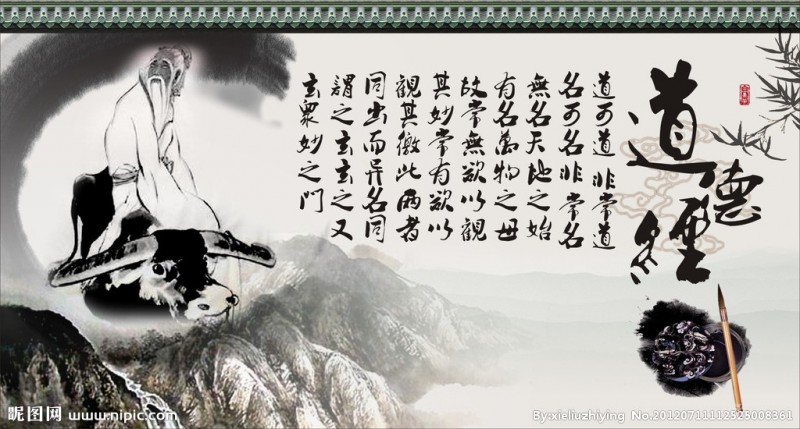 道德經
道可道非常道
名可名非常名
無名天地之始
有名萬物之母
故常無欲以觀
其妙常有欲以
觀其徼此兩者
同出而异名同
謂之玄玄之又
玄衆妙之門
昵图网 www.nipic.com
By:xieliuzhiying No.20120711112525008361